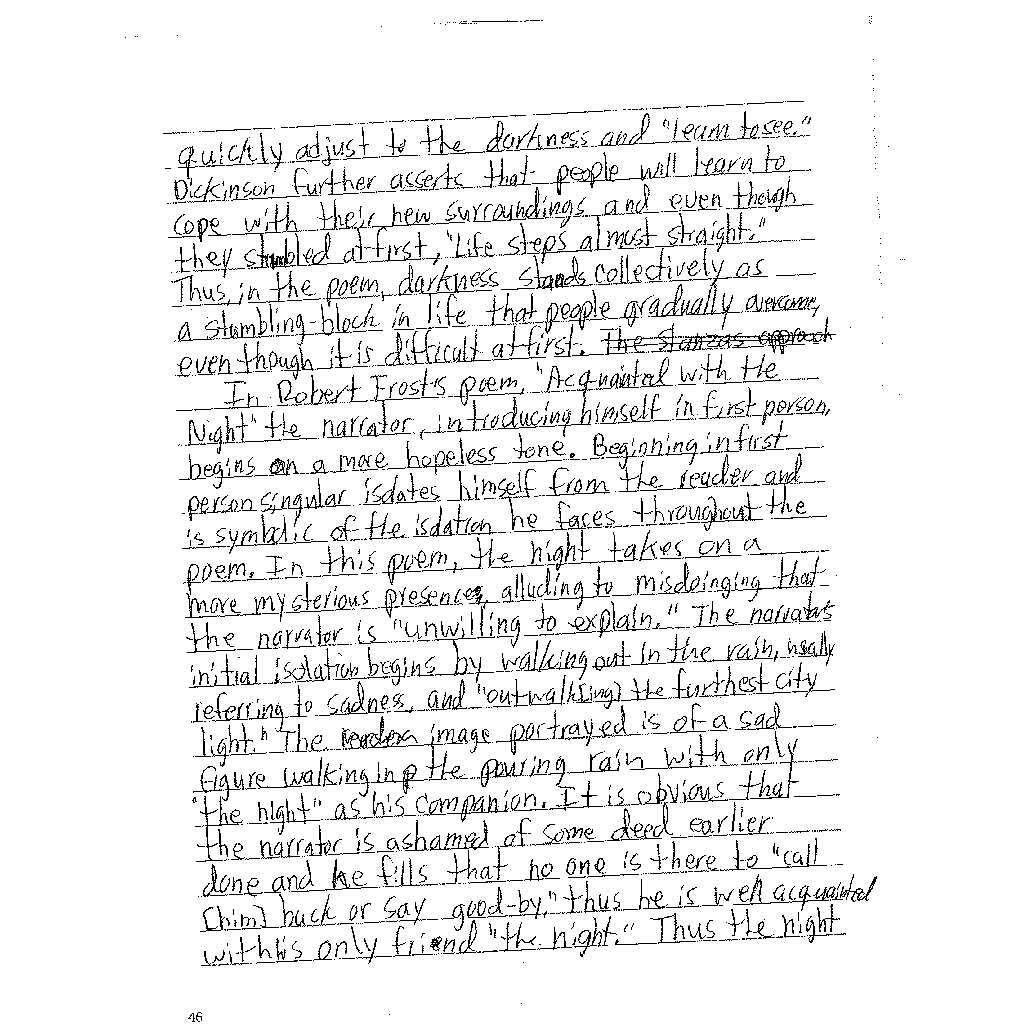 quickly adjust to the darkness and "learn to see."
Dickinson further asserts that people will learn to
cope with their new surroundings and even though
they stumbled at first, "Life steps almost straight."
Thus, in the poem, darkness stands collectively as
a stumbling-block in life that people gradually overcome,
even though it is difficult at first. The stanzas approach
In Robert Frost's poem, "Acquainted with the
Night" the narrator, introducing himself in first person,
begins on a more hopeless tone. Beginning in first
person singular isolates himself from the reader and
is symbolic of the isolation he faces throughout the
poem. In this poem, the night takes on a
more mysterious presence, alluding to misdoinging that
the narrator is "unwilling to explain." The narrator's
initial isolation begins by walking out in the rain, usally
referring to sadness, and "outwalk[ing] the furthest city
light." The image portrayed is of a sad
figure walking in the pouring rain with only
"the night" as his companion. It is obvious that
the narrator is ashamed of some deed earlier
done and he fills that no one is there to "call
[him] back or say good-by," thus he is well acquainted
with his only friend "the night." Thus the night
46